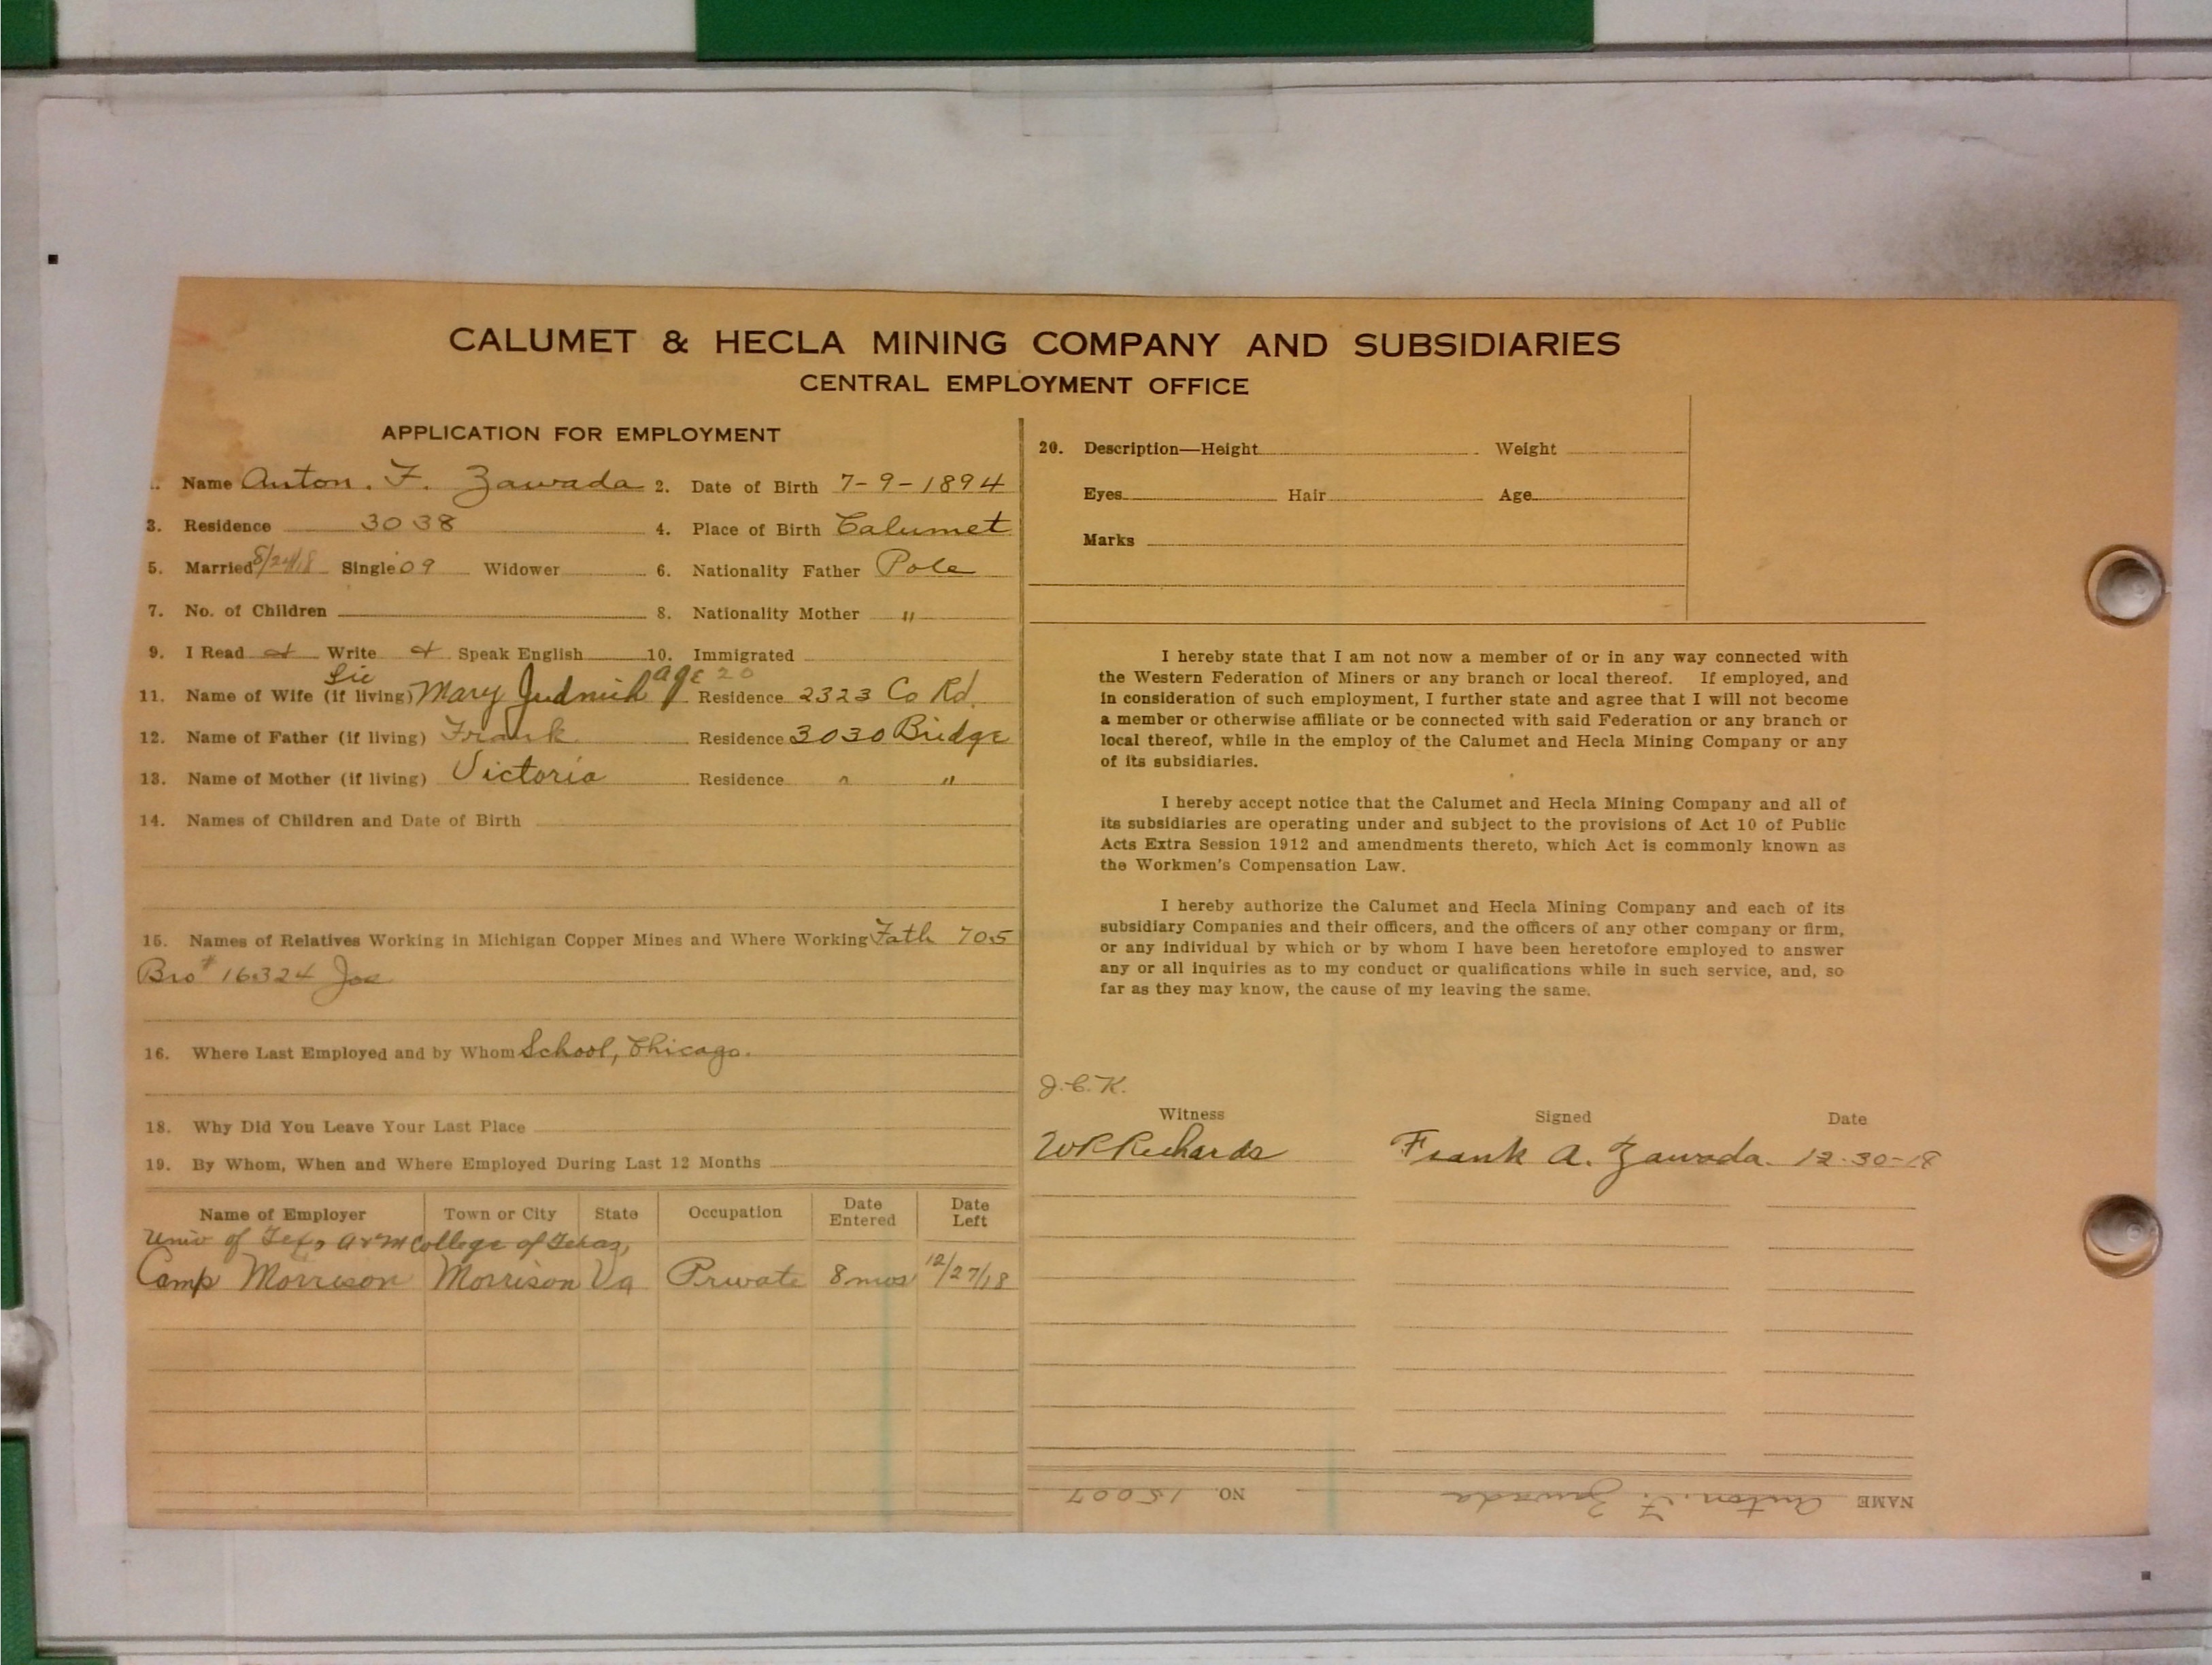 CALUMET & HECLA MINING COMPANY AND SUBSIDIARIES
CENTRAL EMPLOYMENT OFFICE
APPLICATION FOR EMPLOYMENT
Name Anton. F. Zawada 2. Date of Birth 7-9-1894
3. Residence 3038 4. Place of Birth Calumet
5. Married 8/24/18 Single 09 Widower 6. Nationality Father Pole
7. No. of Children 8. Nationality Mother "
9. I Read & Write & Speak English 10. Immigrated
Lic age 20
11. Name of Wife (if living) Mary Judnich Residence 2323 Co Rd.
12. Name of Father (if living) Frank Residence 3030 Bridge
13. Name of Mother (if living) Victoria Residence " "
14. Names of Children and Date of Birth
15. Names of Relatives Working in Michigan Copper Mines and Where Working Fath 705
Bro # 16324 Joe
16. Where Last Employed and by Whom School, Chicago.
18. Why Did You Leave Your Last Place
19. By Whom, When and Where Employed During Last 12 Months
Name of Employer Town or City State Occupation Date Entered Date Left
Univ of Tex, A & M College of Texas,
Camp Morrison Morrison Va Private 8 mos 12/27/18
20. Description—Height Weight
Eyes Hair Age
Marks
I hereby state that I am not now a member of or in any way connected with
the Western Federation of Miners or any branch or local thereof. If employed, and
in consideration of such employment, I further state and agree that I will not become
a member or otherwise affiliate or be connected with said Federation or any branch or
local thereof, while in the employ of the Calumet and Hecla Mining Company or any
of its subsidiaries.
I hereby accept notice that the Calumet and Hecla Mining Company and all of
its subsidiaries are operating under and subject to the provisions of Act 10 of Public
Acts Extra Session 1912 and amendments thereto, which Act is commonly known as
the Workmen's Compensation Law.
I hereby authorize the Calumet and Hecla Mining Company and each of its
subsidiary Companies and their officers, and the officers of any other company or firm,
or any individual by which or by whom I have been heretofore employed to answer
any or all inquiries as to my conduct or qualifications while in such service, and, so
far as they may know, the cause of my leaving the same.
J.C.K.
Witness Signed Date
WR Richards Frank A. Zawada. 12-30-18
NAME Anton. F. Zawada NO. 15007